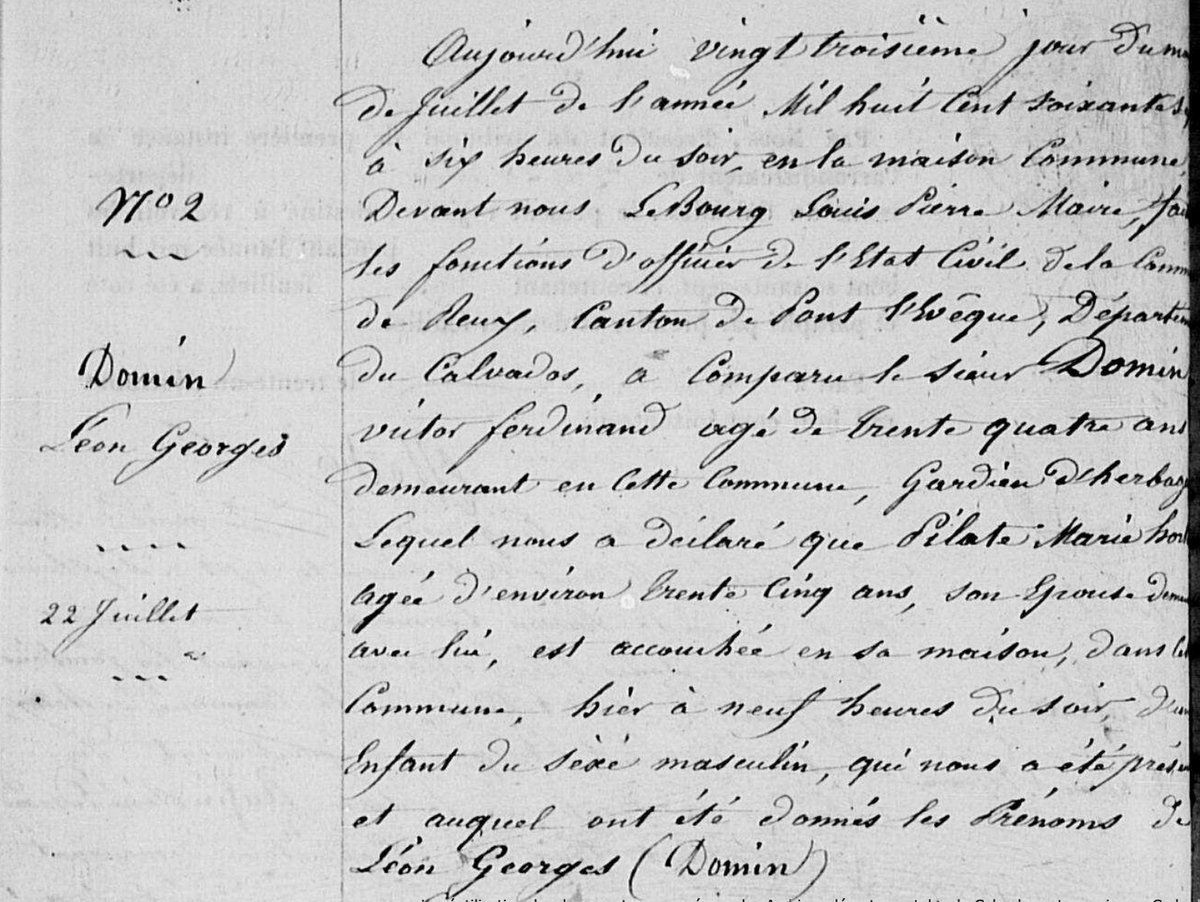 Aujourd'hui vingt troisième jour du
de Juillet de l'année Mil huit Cent soixante
à six heures du soir, en la maison Commune,
N° 2
Devant nous LeBourg Louis Pierre Maire,
les fonctions d'officier de l'Etat Civil de la Comm
de Reux, Canton de Pont l'Evêque, Départem
Domin
du Calvados, a Comparu le sieur Domin
victor ferdinand agé de trente quatre ans
Léon Georges
demeurant en Cette Commune, Gardien d'herbag
Lequel nous a déclaré que Pilate Marie hort
agée d'environ trente Cinq ans, son Epouse dem
22 Juillet
avec lui, est accouchée en sa maison, dans
Commune, hier à neuf heures du soir, d'un
Enfant du séxé masculin, qui nous a été prés
et auquel ont été donnés les Prénoms de
Léon Georges (Domin)